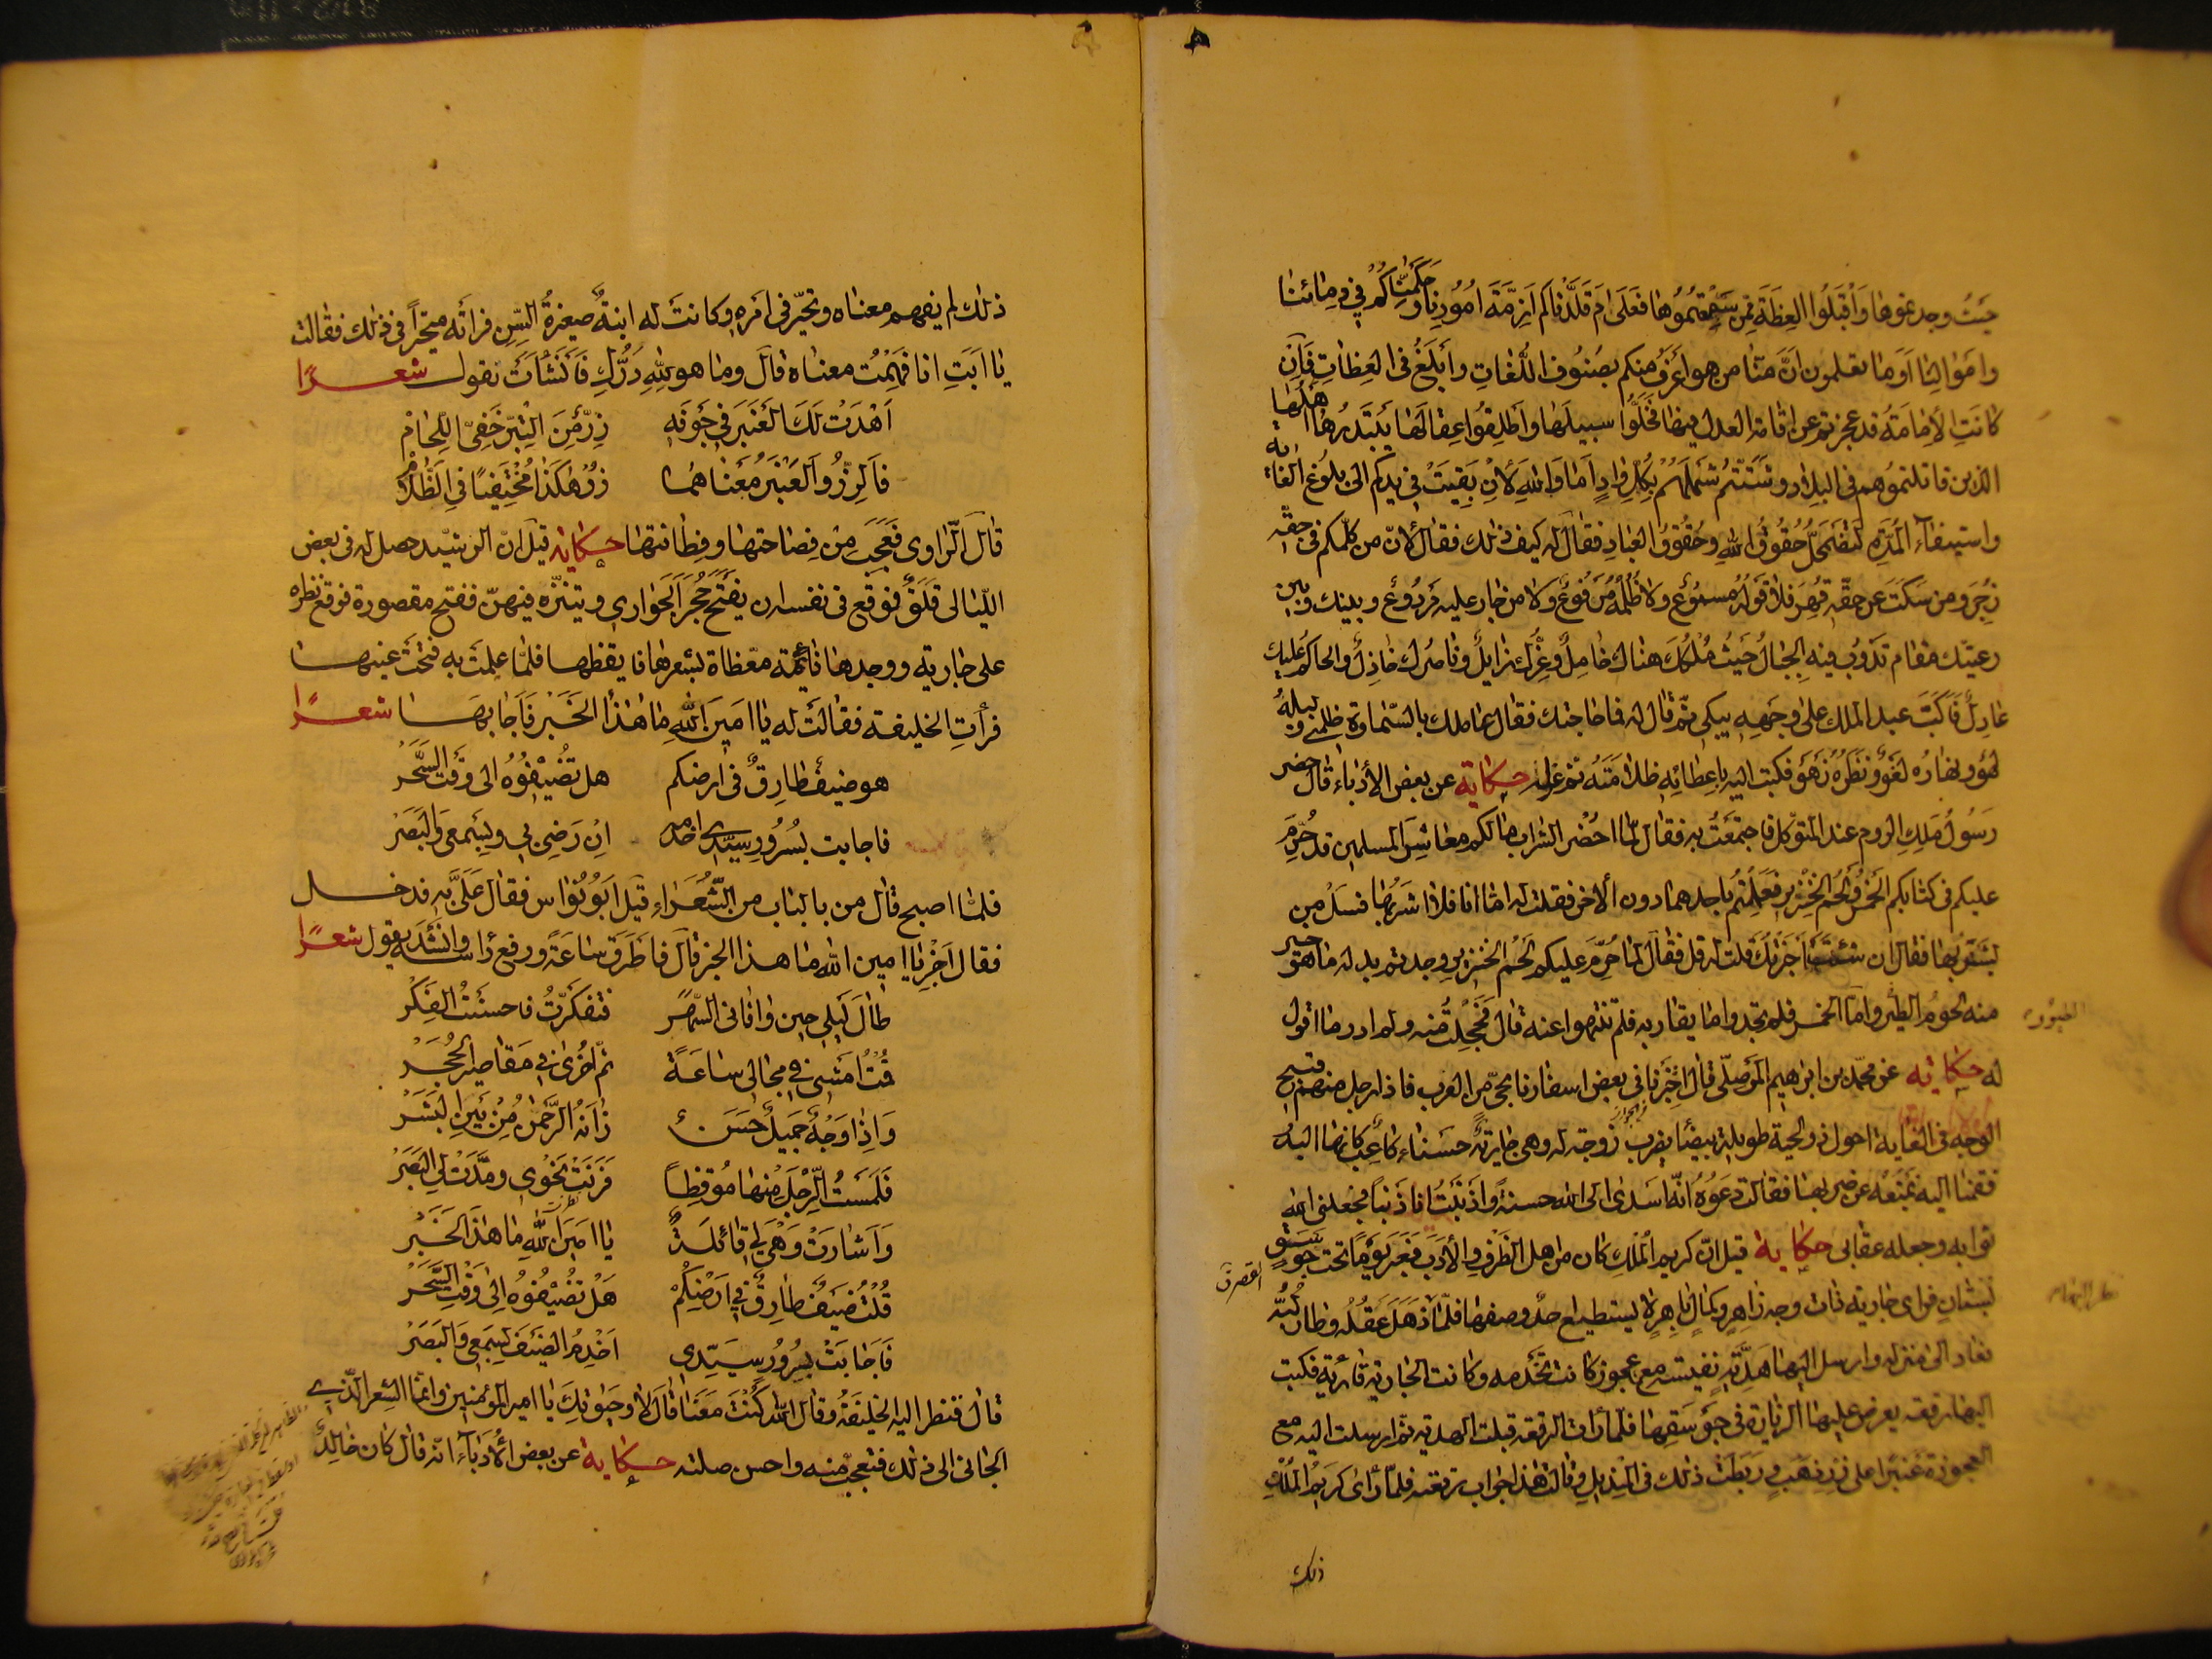 حيث وجدتموها وأقبلوا العظة ممن سمعتموها فعلى م قلدناكم ازمة امورنا وحكمناكم في دمائنا
واموالنا اوما تعلمون ان منا من هو اعرف منكم بصنوف اللغات وأبلغ في العظات فان
كانت الأمامة قد عجزتم عن اقامة العدل فيها فخلوا سبيلها وأطلقوا عقالها يبتدرها اهلها
الذين قاتلتموهم في البلاد وشتتم شملهم بكل واد اما والله لأن بقيت في يدكم الى بلوغ الغاية
واستيفاء المدة لتضمحل حقوق الله وحقوق العباد فقال له كيف ذلك فقال لان من كلمكم في حقه
زجر ومن سكت عن حقه قهر فلا قوله مسموع ولا ظلمه مرفوع ولا من جار عليه مردوع وبينك وبين
رعيتك مقام تذوب فيه الجبال حيث ملكك هناك خامل وعزك زايل وناصرك خاذل والحاكم عليك
عادل فأكب عبد الملك على وجهه يبكي ثم قال له فما حاجتك فقال عاملك بالسماوة ظلمني وليله
لهو ونهاره لغو ونظره زهو فكتب اليه باعطائه ظلامته ثم عزله حكاية عن بعض الأدباء قال حضر
رسول ملك الروم عند المتوكل فاجتمعت به فقال لما احضر الشراب مالكم معاشر المسلمين قد حرم
عليكم في كتابكم الخمر ولحم الخنزير فعملتم باحدهما دون الاخر فقلت له اما انا فلا اشربها فسل من
يشربها فقال ان شئت اخبرتك قلت له قل فقال لما حرم عليكم لحم الخنزير وجدتم بدله ما هو خير
منه لحوم الطير واما الخمر فلم تجدوا ما يقاربه فلم تنتهوا عنه قال فخجلت منه ولم ادر ما اقول
له حكاية عن محمد بن ابراهيم الموصلي قال اخبرنا في بعض اسفارنا بحي من العرب فاذا رجل منهم قبيح
الوجه في الغاية احول ذو لحية طويلة بيضا يضرب زوجة له وهي جارية حسناء كاعب كانها البدر
فقمنا اليه نمنعه عن ضربها فقالت دعوه انه اسدى الى الله حسنة واذنبت انا ذنبا فجعلني الله
ثوابه وجعله عقابى حكاية قيل ان كريم الملك كان من اهل الظرف والأدب فعبر يوما تحت جوسق
ببستان فراى جارية ذات وجه زاهر وكمال باهر لا يستطيع احد وصفها فلما ذهل عقله وطار لبه
فعاد الى منزله وارسل اليها هدية نفيسة مع عجوز كانت تخدمه وكانت الجارية قارئة فكتبت
اليها رقعة يعرض عليها الزيارة في جوسقها فلما قرأت الرقعة قبلت الهدية ثم ارسلت اليه مع
العجوزة عنبرا على زر ذهب وربطت ذلك في المنديل وقالت هذا جواب رقعته فلما رأى كريم الملك
ذلك
القصر
ذلك لم يفهم معناه وتحير في امره وكانت له ابنة صغيرة السن فراته متحيرا في ذلك فقالت
يا ابت انا فهمت معناه قال وما هو لله درك فانشأت تقول شعرا
اهدت لك العنبر في جوفه زر من التبر خفى اللحام
فالزر والعنبر معناهما زر هكذا مختفيا في الظلام
قال الراوي فعجب من فصاحتها وفطانتها حكاية قيل ان الرشيد حصل له في بعض
الليالى قلق فوقع في نفسه ان يفتح حجر الجواري ويتنزه فيهن ففتح مقصورة فوقع نظره
على جارية ووجدها نائمة مغطاة بشعرها فايقظها فلما علمت به فتحت عينيها
فرأت الخليفة فقالت له يا امين الله ما هذا الخبر فاجابها شعرا
هو ضيف طارق في ارضكم هل تضيفوه الى وقت السحر
فاجابت بسرور سيدي اخدمه ان رضي بي وبسمعى والبصر
فلما اصبح قال من بالباب من الشعراء قيل ابو نواس فقال على به فدخل
فقال اجزنا امين الله ما هذا الخبر قال فاطرق ساعة ورفع راسه وانشد يقول شعرا
طال ليلى حين وافانى السهر فتفكرت فاحسنت الفكر
قمت امشى في مجالى ساعة ثم اخرى في مقاصير الحجر
واذا وجه جميل حسن زانه الرحمن من بين البشر
فلمست الرجل منها موقظا فرنت نحوى ومدت لي البصر
واشارت وهي لي قائلة يا امين الله ما هذا الخبر
قلت ضيف طارق في ارضكم هل تضيفوه الى وقت السحر
فاجابت بسرور سيدي اخدم الضيف بسمعى والبصر
قال فنظر اليه الخليفة وقال الله اكنت معنا قال لا وحيوتك يا امير المؤمنين وانما الشعر الذي
الجانى الى ذلك فتعجب منه واحسن صلته حكاية عن بعض الادباء انه قال كان خالد